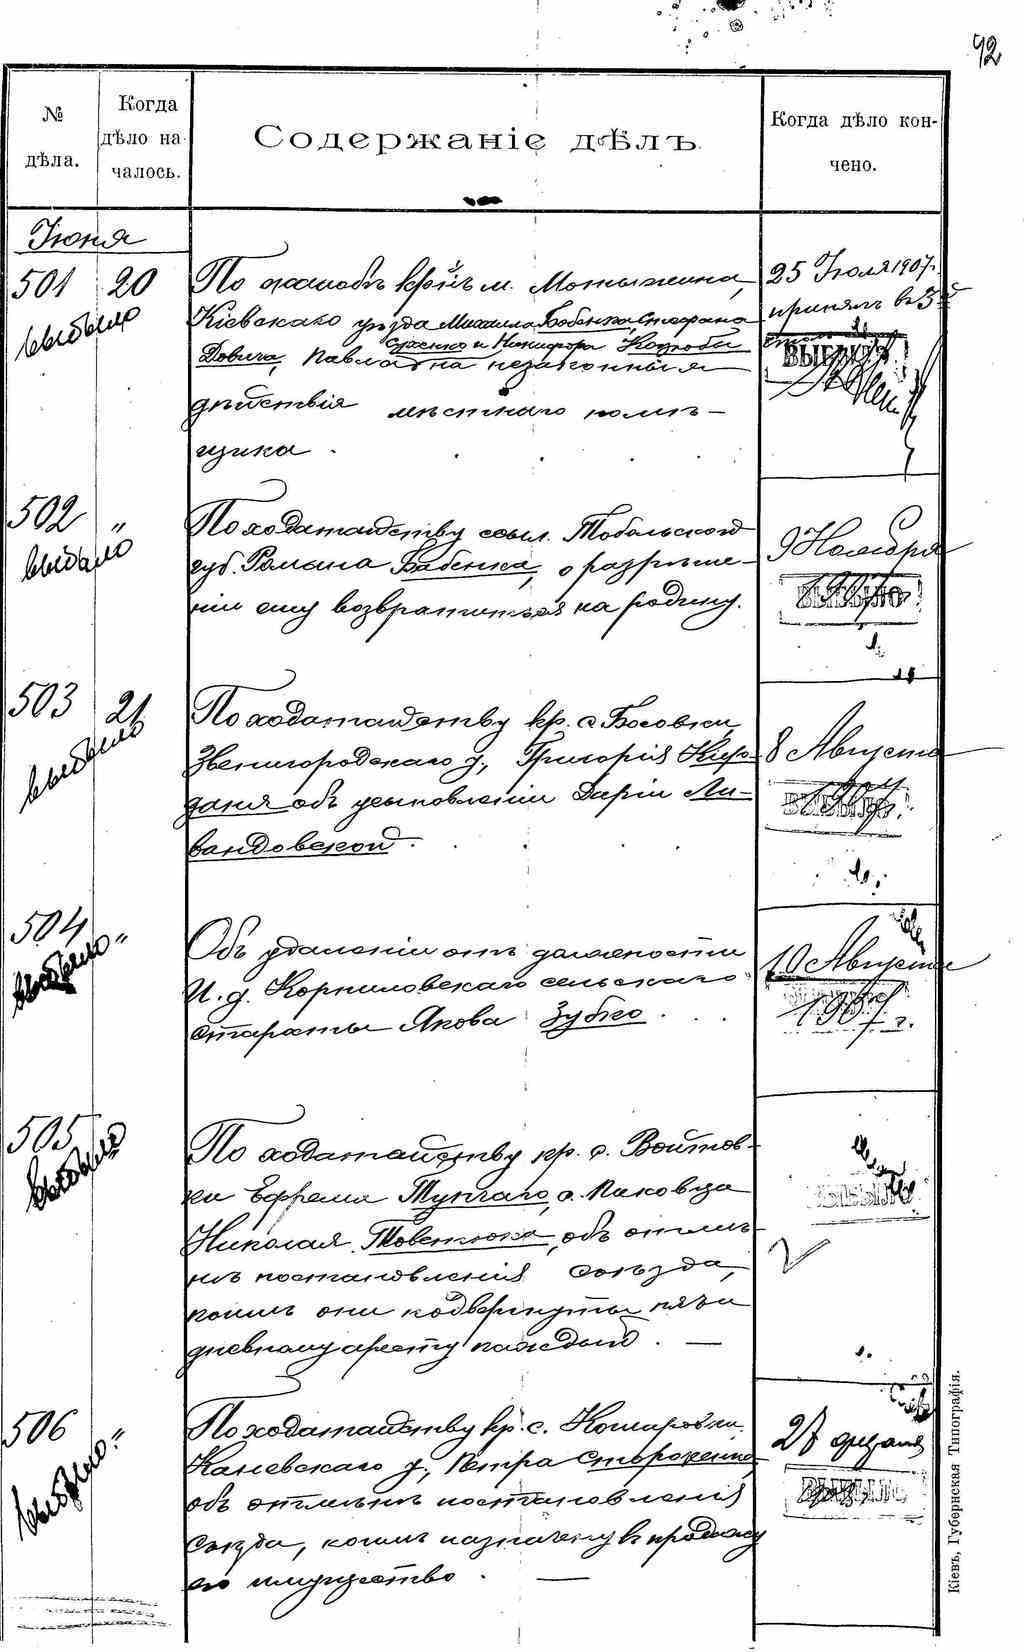 92
№ дѣла.
Когда дѣло на-
чалось.
Содержаніе дѣлъ.
Когда дѣло кон-
чено.
Іюня
501 20
выбыло
По жалобѣ кр. м. Мотыжина,
Кіевскаго уѣзда Михаила Бабенка, Стефана
и Никифора
Довича, Павла на незаконныя
дѣйствія мѣстнаго помѣ-
щика.
25 Іюля 1907 г.
принятъ въ 3й
столъ
ВЫБЫЛО
502 "
выбыло
По ходатайству ссыл. Тобольской
губ. Романа Бабенка, о разрѣше-
ніи ему возвратиться на родину.
9 Ноября
1907
ВЫБЫЛО
503 21
выбыло
По ходатайству кр. с. Босовки,
Звенигородскаго у., Григорія Кир-
даня объ усыновленіи Даріи Ли-
вандовской.
8 Августа
1907 г.
ВЫБЫЛО
504 "
выбыло
Объ удаленіи отъ должности
И. д. Корниловскаго сельскаго
старосты Якова Зубко.
10 Августа
1907 г.
505 "
выбыло
По ходатайству кр. с. Войтов-
ки Ефрема Тупчаго, с. Паковца
Николая Товенюка, объ отмѣ-
нѣ постановленія съѣзда,
коимъ они подвергнуты пяти
дневному аресту каждый.
ВЫБЫЛО
506 "
выбыло
По ходатайству кр. с. Кошаровки,
Каневскаго у., Петра Стороженко,
объ отмѣнѣ постановленія
съѣзда, коимъ назначено въ продажу
его имущество.
ВЫБЫЛО
Кіевъ, Губернская Типографія.